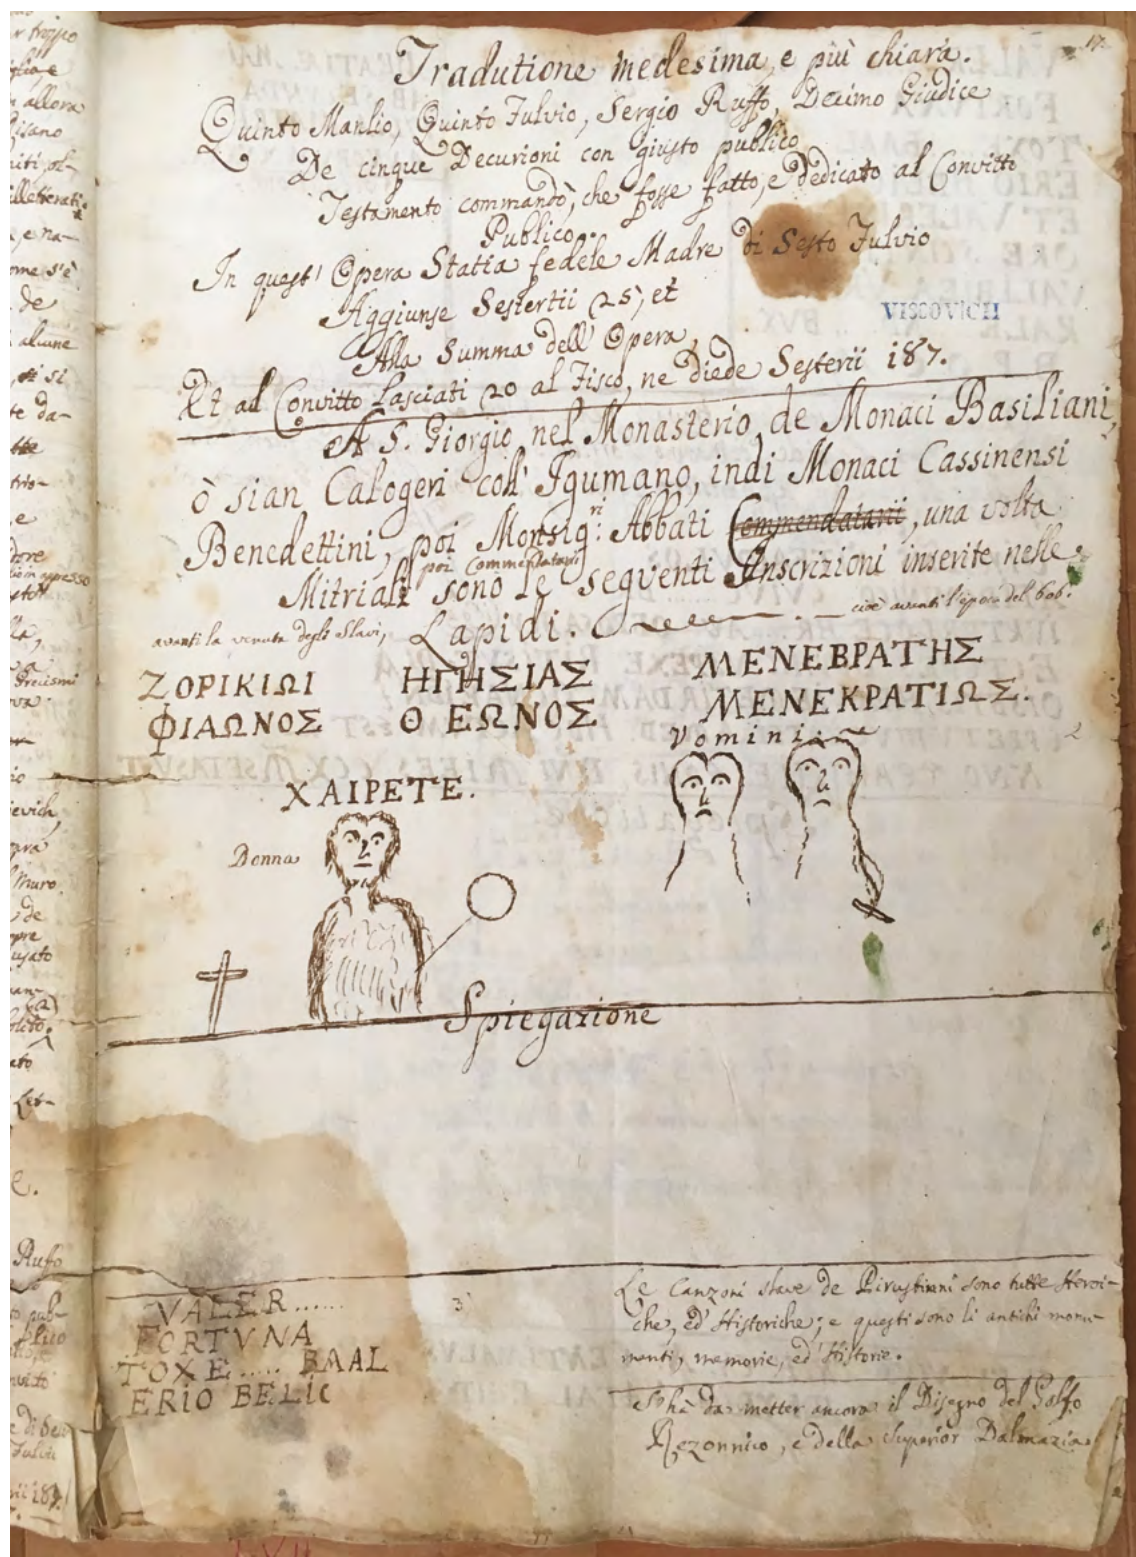 17.
Tradutione medesima, e più chiara.
Quinto Manlio, Quinto Fulvio, Sergio Ruffo, Decimo Giudice
De cinque Decurioni con giusto publico
Testamento commandò, che fosse fatto, e dedicato al Convitto
Publico..
In quest' Opera Statia fedele Madre di Sesto Fulvio
Aggiunse Sestertii 25, et
Alla Summa dell' Opera,
VISCOVICH
Et al Convitto Lasciati 20 al Fisco, ne diede Sesterii 187.
A S. Giorgio nel Monasterio de Monaci Basiliani,
ò sian Calogeri coll' Igumano, indi Monaci Cassinensi
Benedettini, poi Monsigri: Abbati Commendatarii, una volta
poi Commendatarii
Mitriali sono le seguenti Inscrizioni inserite nelle
avanti la venuta degli Slavi, Lapidi. cioè avanti l'epoca del 606.
ΖΟΡΙΚΙΩΙ ΗΓΗΣΙΑΣ ΜΕΝΕΒΡΑΤΗΣ
ΦΙΛΩΝΟΣ Θ ΕΩΝΟΣ ΜΕΝΕΚΡΑΤΙΩΣ.
Vomini
ΧΑΙΡΕΤΕ.
Donna
Spiegazione
VALER......
FORTVNA
TOXE..... BAAL
ERIO BELIC
3
Le Canzoni slave de Pirustinni sono tutte Heroi-
che, ed' Historiche; e questi sono li antichi monu-
menti, memorie, ed' Historie.
S'hà da metter ancora il Disegno del Golfo
Rezonnico, e della Superior Dalmazia